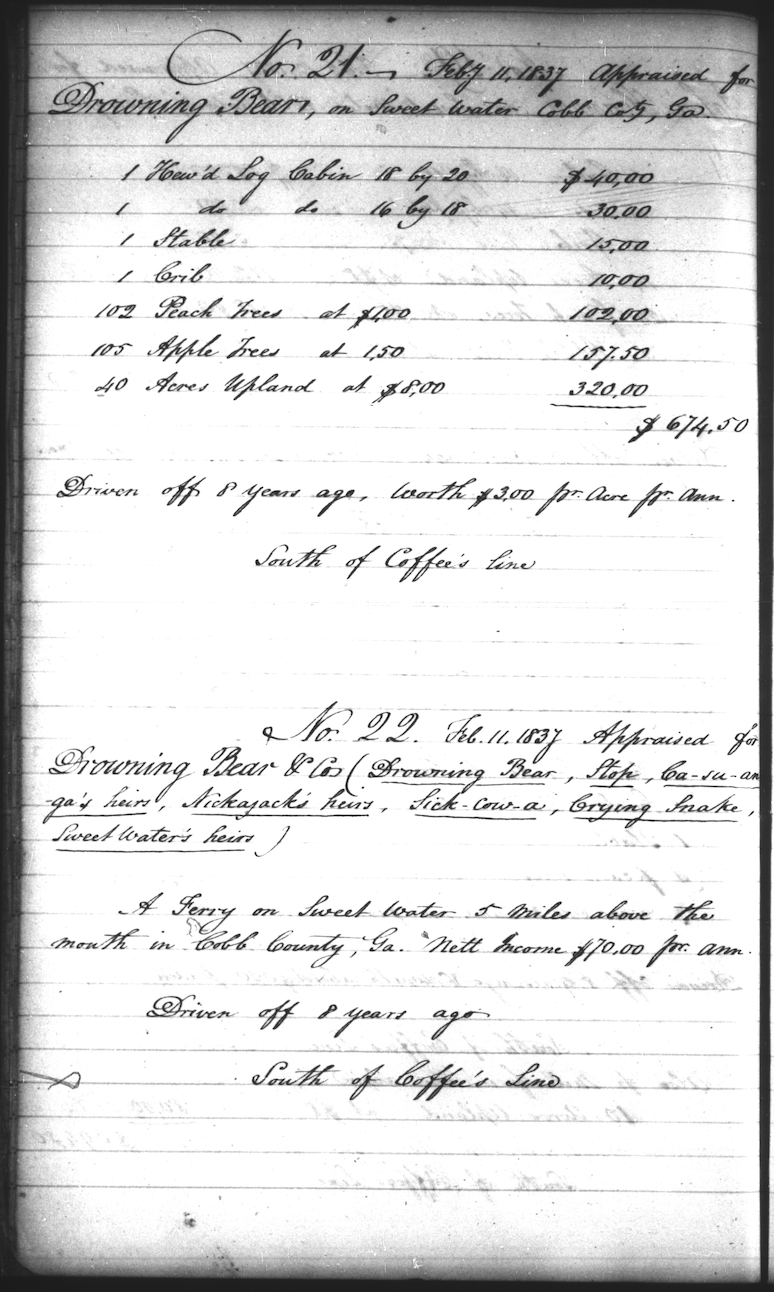 No. 21. Feby 11, 1837 Appraised for
Drowning Bear, on Sweet Water Cobb Coty, Ga.
1 Hew'd Log Cabin 18 by 20 $40,00
1 do do 16 by 18 30.00
1 Stable 15,00
1 Crib 10,00
102 Peach Trees at $1,00 102,00
105 Apple Trees at 1,50 157.50
40 Acres Upland at $8,00 320,00
$674.50
Driven off 8 years ago, worth $3,00 pr. Acre pr. Ann.
South of Coffee's line
No. 22. Feb. 11. 1837 Appraised for
Drowning Bear & Co (Drowning Bear, Stop, Ca-su-an
ga's heirs, Nickajack's heirs, Sick-cow-a, Crying Snake,
Sweet Water's heirs)
A Ferry on Sweet Water 5 miles above the
mouth in Cobb County, Ga. Nett Income $70,00 pr. ann.
Driven off 8 years ago
South of Coffee's Line